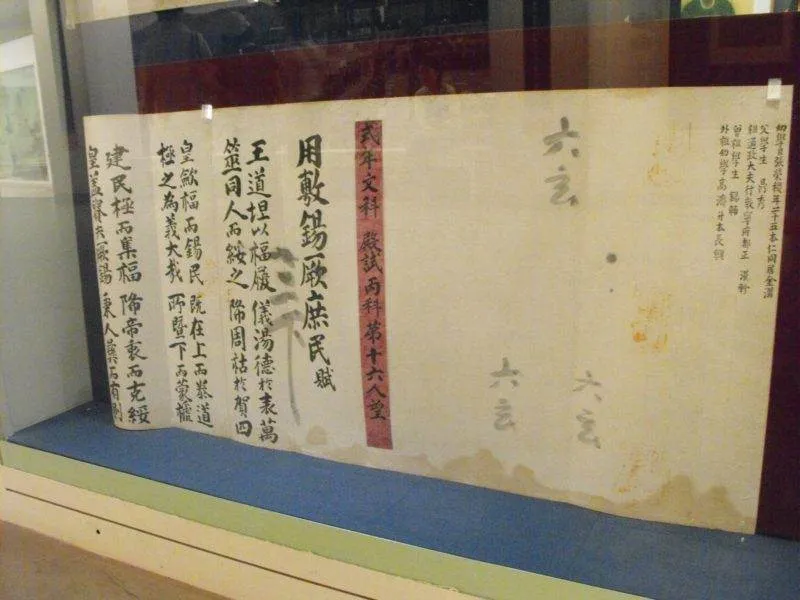 幼學臣張榮稷年二十五本仁同居金溝
父學生 秀
祖通政大夫行敦寧府都正 漢幹
曾祖學生 錫輔
外祖幼學高濟 本長興
六玄
六玄
六玄
式年文科 殿試丙科第十六人望
用敷錫厥庶民賦
王道坦以福履 儀湯德於表萬
筮同人而綏之 降周祜於賀四
皇斂福而錫民 既在上而恭道
極之為義大哉 所曁下而蒙
建民極而集福 降帝衷而克綏
皇蓋 厥錫 人 而有則
二下